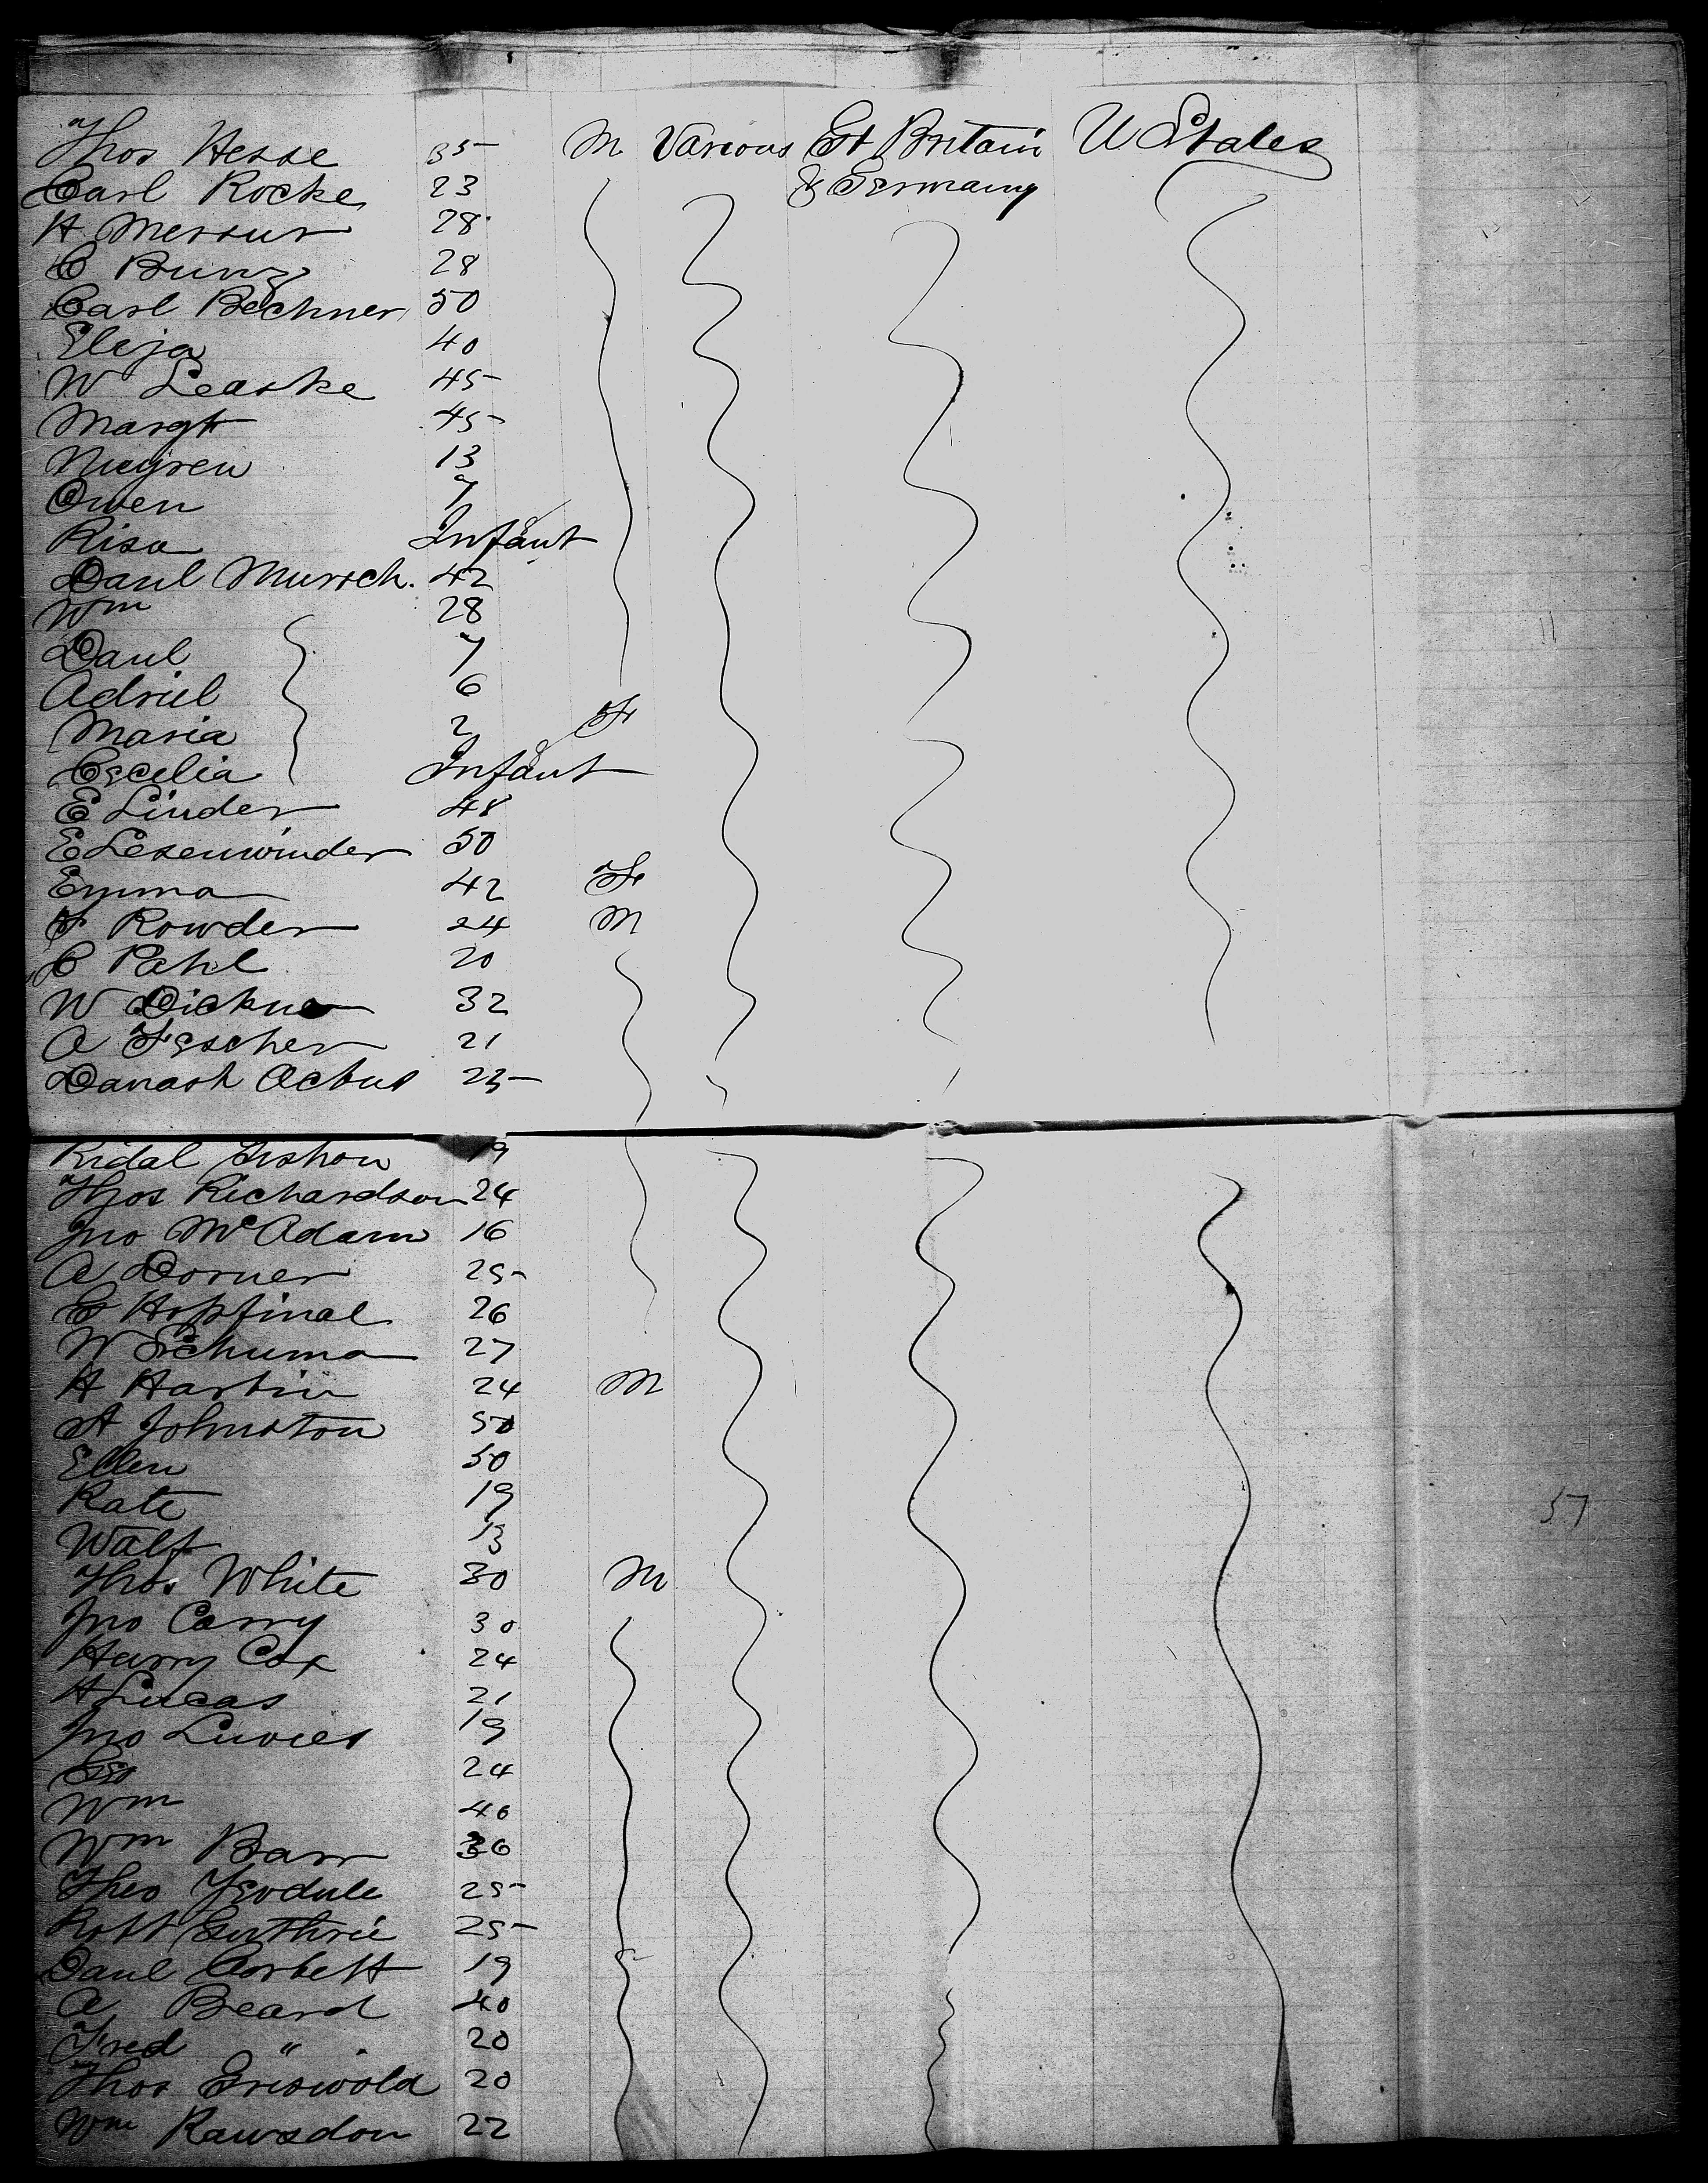 Thos Hesse 35 M Various Gt Britain U States
Carl Rocke 23 & Germany
H Messur 28
C Bunz 28
Carl Bechner 50
Eleja 40
W Leaske 45
Margt 45
13
Owen 7
Risa Infant
Danl Mursch. 42
Wm 28
Danl 7
Adriel 6
Maria 2 F
Cecelia Infant
E Linder 48
E Lesenwinder 50
Emma 42 F
F Rowder 24 M
C Pahl 20
W 32
A Fescher 21
Danash Actus 23
Ridal 19
Thos Richardson 24
Jno McAdam 16
A Dorner 25
Hopfinal 26
W Schuma 27
H Hartin 24 M
A Johnston 50
Ellen 50
Kate 19
Walt 13
Thos White 30 M
Jno Carry 30
Harry Cox 24
H Lucas 21
Jno Luvies 19
Geo 24
Wm 40
Wm Barr 36
Theo 25
Robt Guthrie 25
Danl Corbett 19
A Beard 40
Fred " 20
Thos Griswold 20
Wm Rawsdon 22
11
57